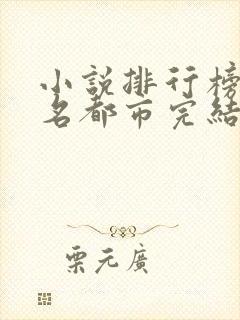 小說排行榜
名都市完結
栗元廣